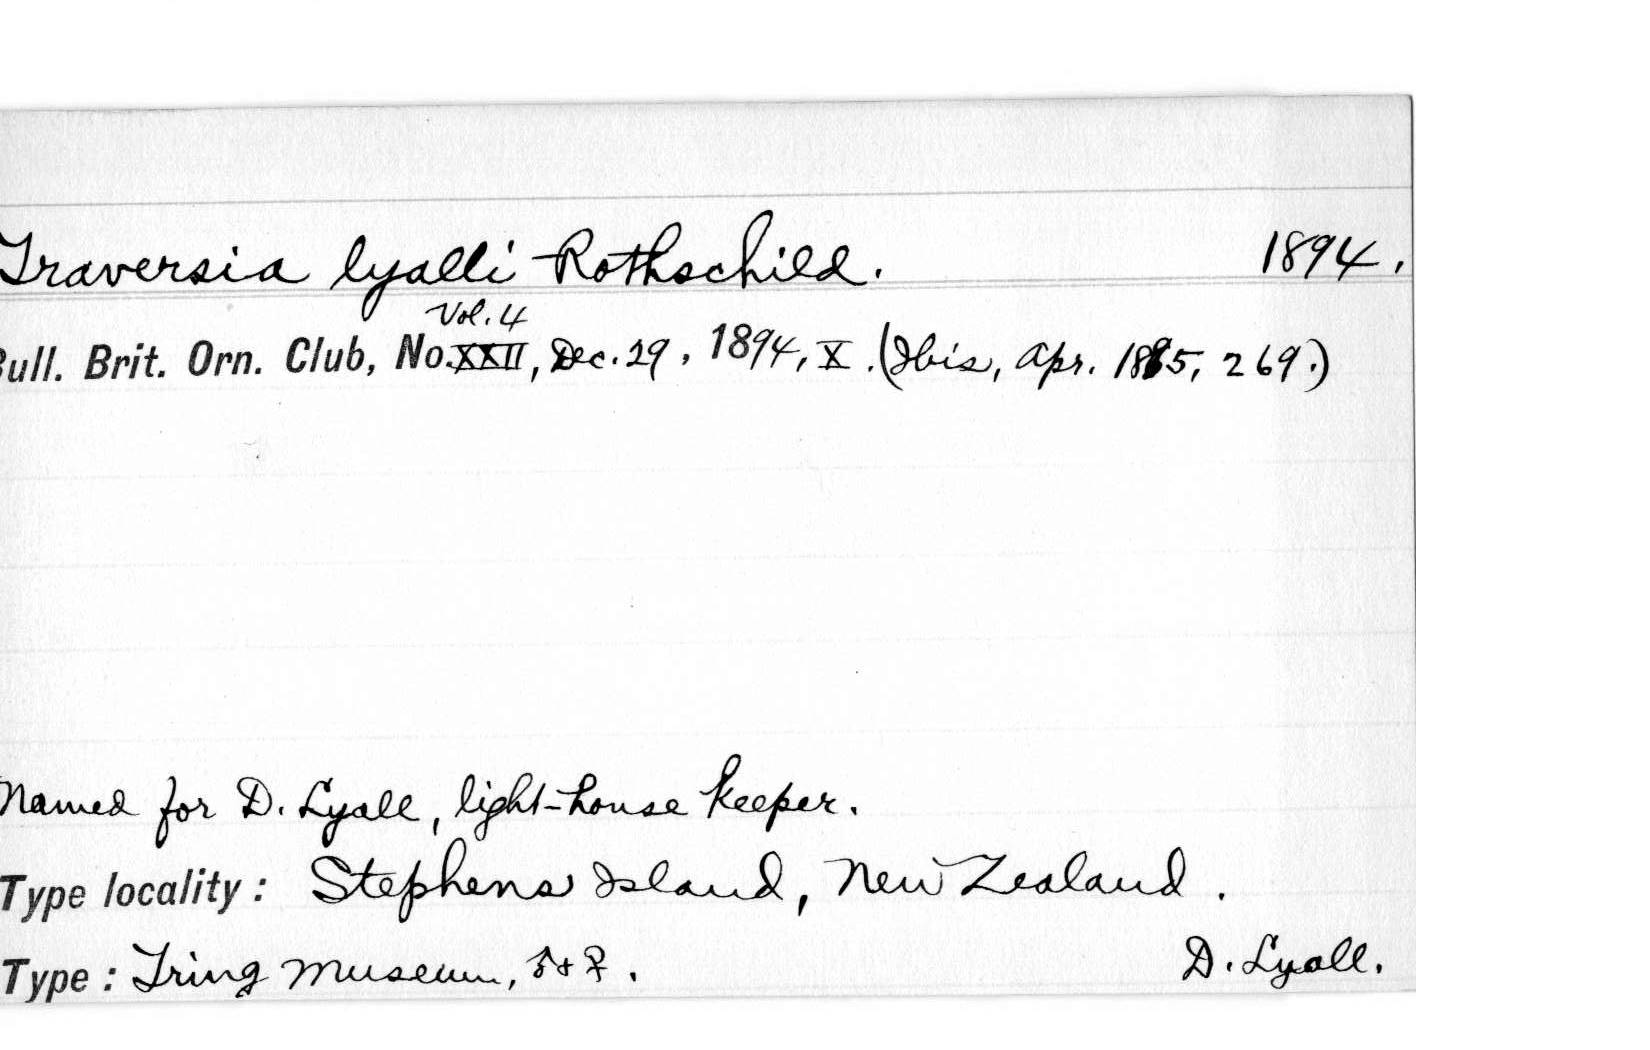 Traversia lyalli Rothschild. 1894.
Vol. 4
Bull. Brit. Orn. Club, No. XXII, Dec. 29, 1894, X. (Ibis, Apr. 1895, 269.)
Named for D. Lyall, light-house keeper.
Type locality: Stephens Island, New Zealand.
Type: Tring Museum, ♂ & ♀. D. Lyall.